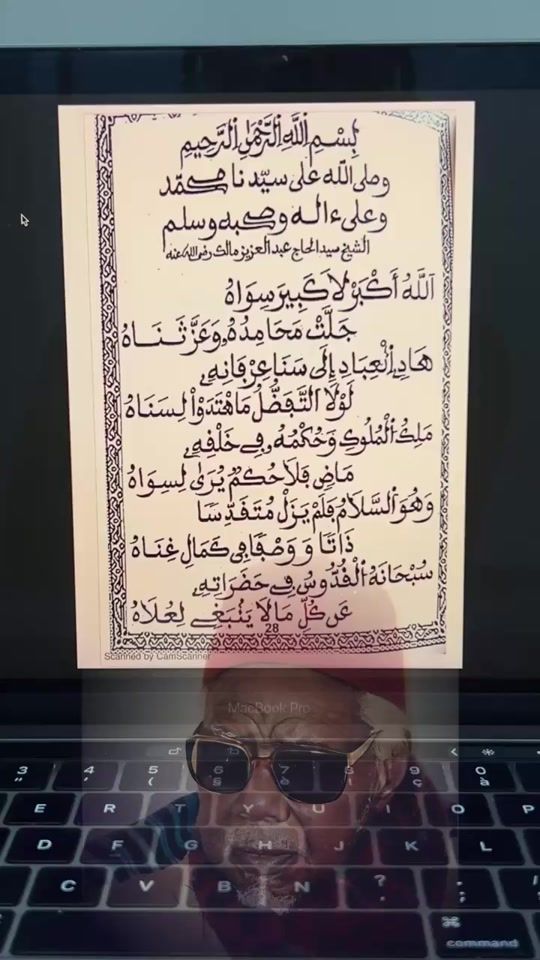 بِسْمِ اللَّهِ الرَّحْمَٰنِ الرَّحِيمِ
وصلى الله على سيّدنا محمّد
وعلى ءاله وصحبه وسلم
الشيخ سيد الحاج عبد العزيز مالك رضي الله عنه
اَللَّهُ أَكْبَرْ لاَ كَبِيرَ سِوَاهُ
جَلَّتْ مَحَامِدُهُ وَعَزَّ ثَنَاهُ
هَادِ الْعِبَادِ إِلَى سَنَا عِرْفَانِهِ
لَوْلَا التَّفَضُّلُ مَا هْتَدَوْا لِسَنَاهُ
مَلِكُ الْمُلُوكِ وَحُكْمُهُ فِي خَلْقِهِ
مَاضٍ فَلاَ حُكْمٌ يُرَىٰ لِسِوَاهُ
وَهُوَ السَّلاَمُ فَلَمْ يَزَلْ مُتَقَدِّسًا
ذَاتًا وَ وَصْفًا فِي كَمَالِ غِنَاهُ
سُبْحَانَهُ الْقُدُّوسُ فِي حَضَرَاتِهِ
عَن كُلِّ مَا لاَ يَنْبَغِي لِعُلاَهُ
28
Scanned by CamScanner
MacBook Pro
3 4 5 6 7 8 9 0
( § è ç à
E R T Y U I O P
D F G H J K L
C V B N ? ;
⌘
command